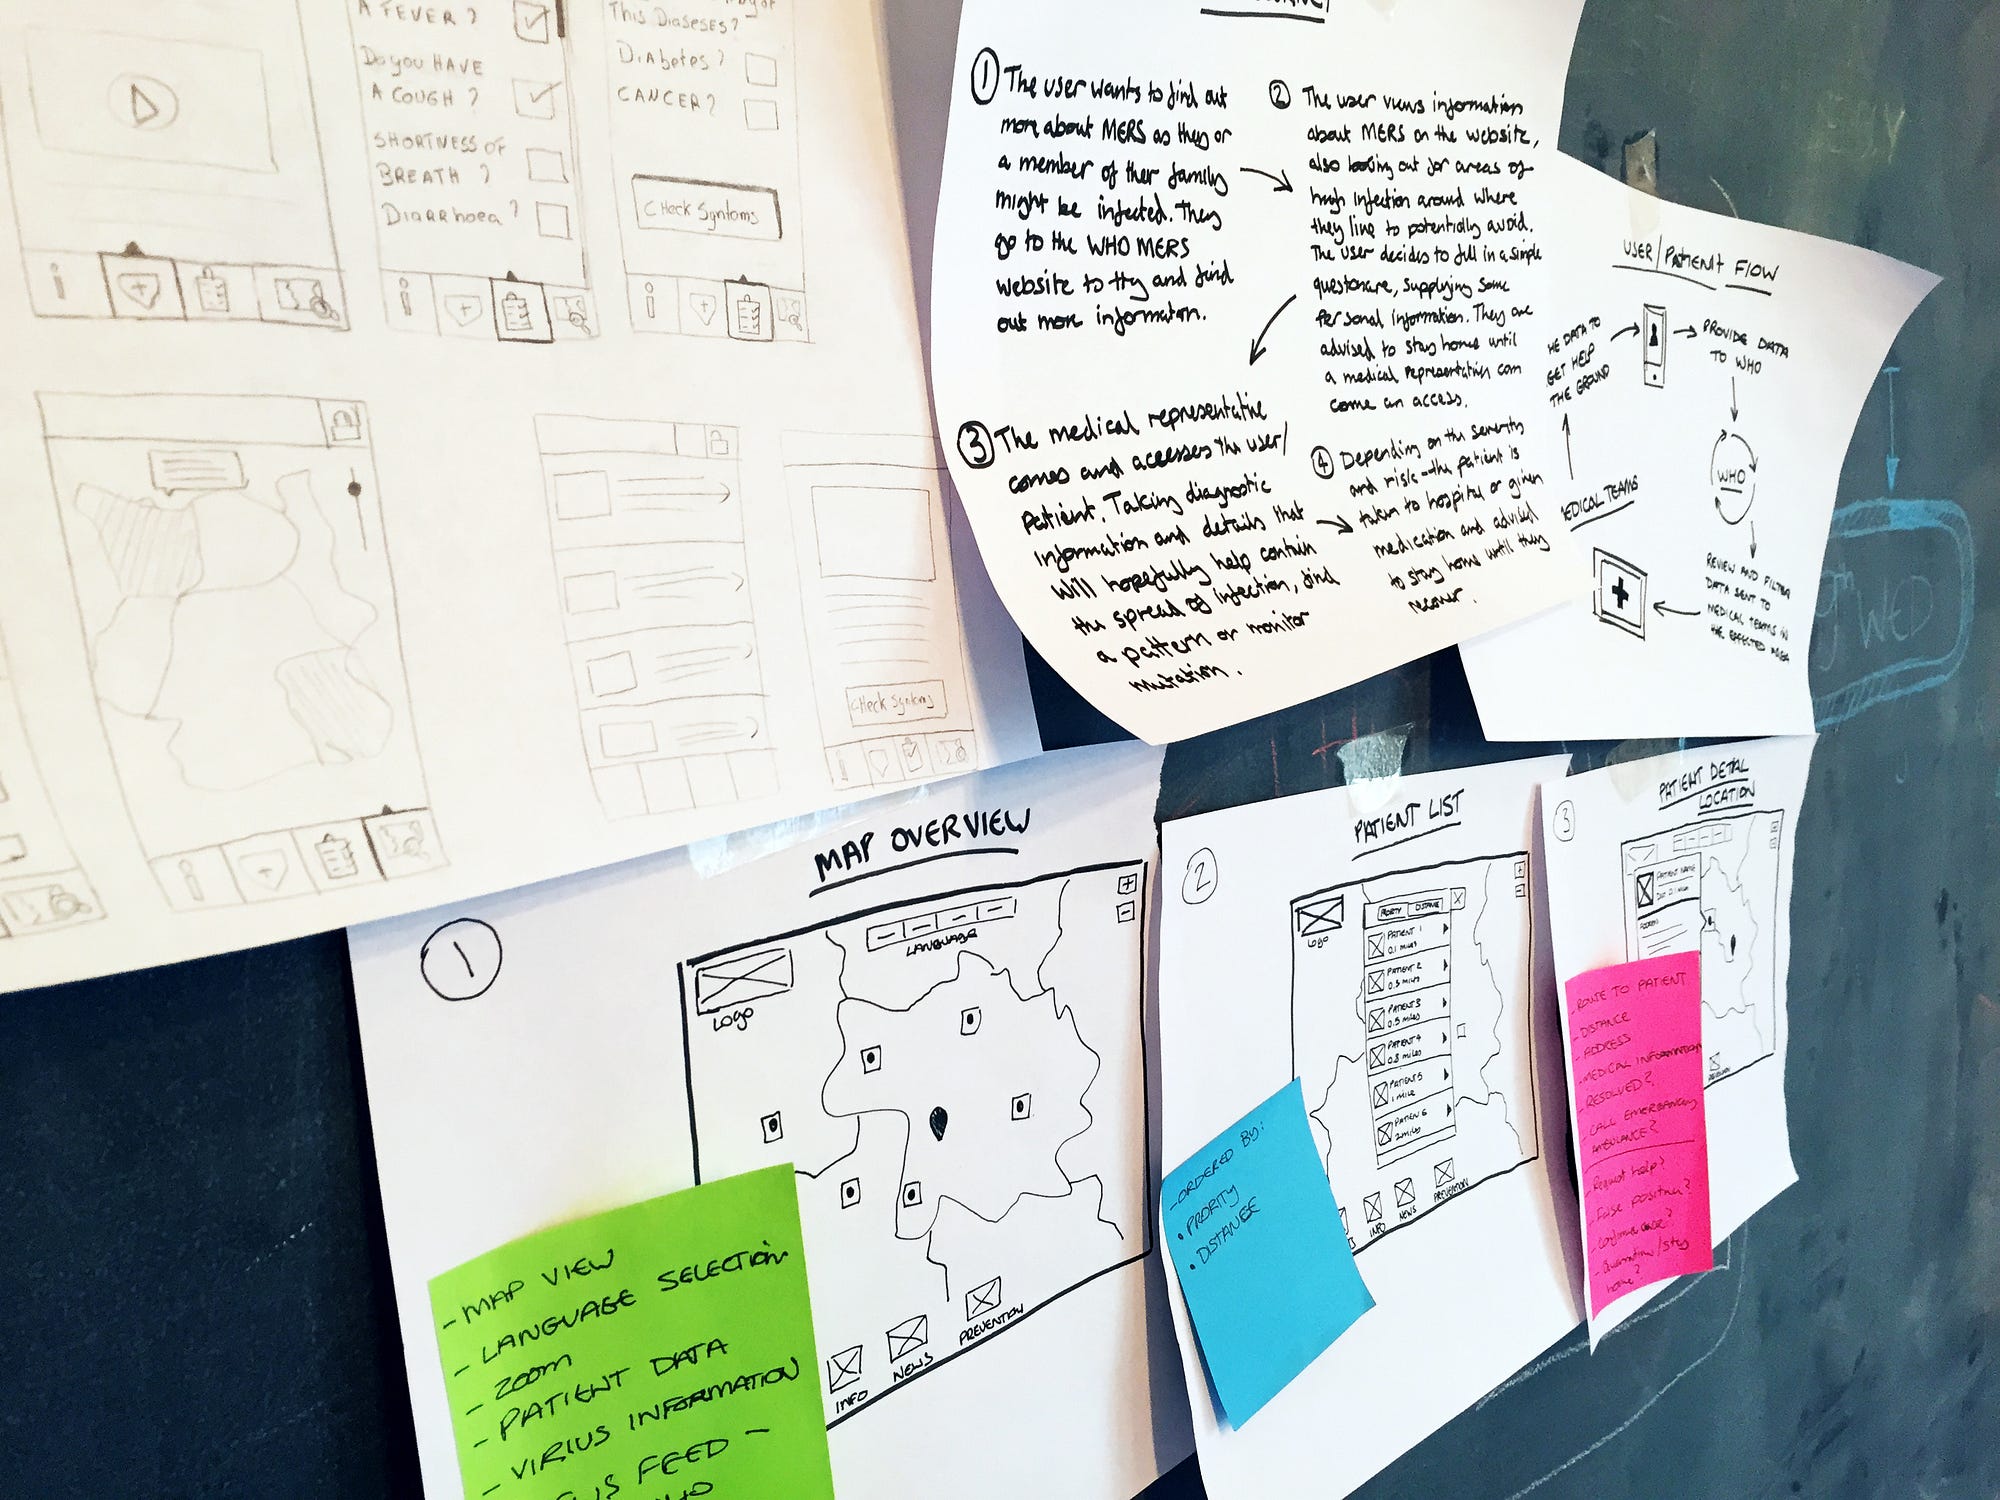 A FEVER?
Do you HAVE
A COUGH?
SHORTNESS OF
BREATH?
Diarrhoea?
This Diaseses?
Diabetes?
CANCER?
CHeck Symtoms
i
i
i
CHeck Symtoms
i
i
① The user wants to find out
more about MERS as they or
a member of ther family
might be infected. They
go to the WHO MERS
website to try and find
out more information.
② The user views information
about MERS on the website,
also looking out for areas of
high infection around where
they live to potentially avoid.
The user decides to fill in a simple
questonare, supplying some
personal information. They are
advised to stay home until
a medical representative can
come an access.
③ The medical representative
comes and accesses the user/
patient. Taking diagnostic
information and details that
will hopefully help contain
the spread of infection, find
a pattern or monitor
mutation.
④ Depending on the severity
and risk - the patient is
taken to hospital or given
medication and advised
to stay home until they
recover.
USER/PATIENT FLOW
DATA TO
GET HELP
THE GROUND
PROVIDE DATA
TO WHO
WHO
REVIEW AND FILTER
DATA SENT TO
MEDICAL TEAMS IN
THE EFFECTED AREA
MEDICAL TEAMS
WED
1
MAP OVERVIEW
LOGO
LANGUAGE
+
-
INFO
NEWS
PREVENTION
- MAP VIEW
- LANGUAGE SELECTION
- ZOOM
- PATIENT DATA
- VIRIUS INFORMATION
FEED -
2
PATIENT LIST
LOGO
PRORITY DISTANCE X
PATIENT 1
0.1 MILES
PATIENT 2
0.3 MILES
PATIENT 3
0.5 MILES
PATIENT 4
0.8 MILES
PATIENT 5
1 MILE
PATIEN 6
2 MILES
+
-
INFO
NEWS
PREVENTION
- ORDERED BY:
• PRORITY
• DISTANCE
3
PATIENT DETAIL
LOCATION
PATIENT NAME
ADDRESS
- ROUTE TO PATIENT
- DISTANCE
- ADDRESS
- MEDICAL INFORMATION
- RESOLVED?
- CALL EMERGANCY
AMBULANCE?
- Request help?
- False positive?
- Quarantine/stay
home?